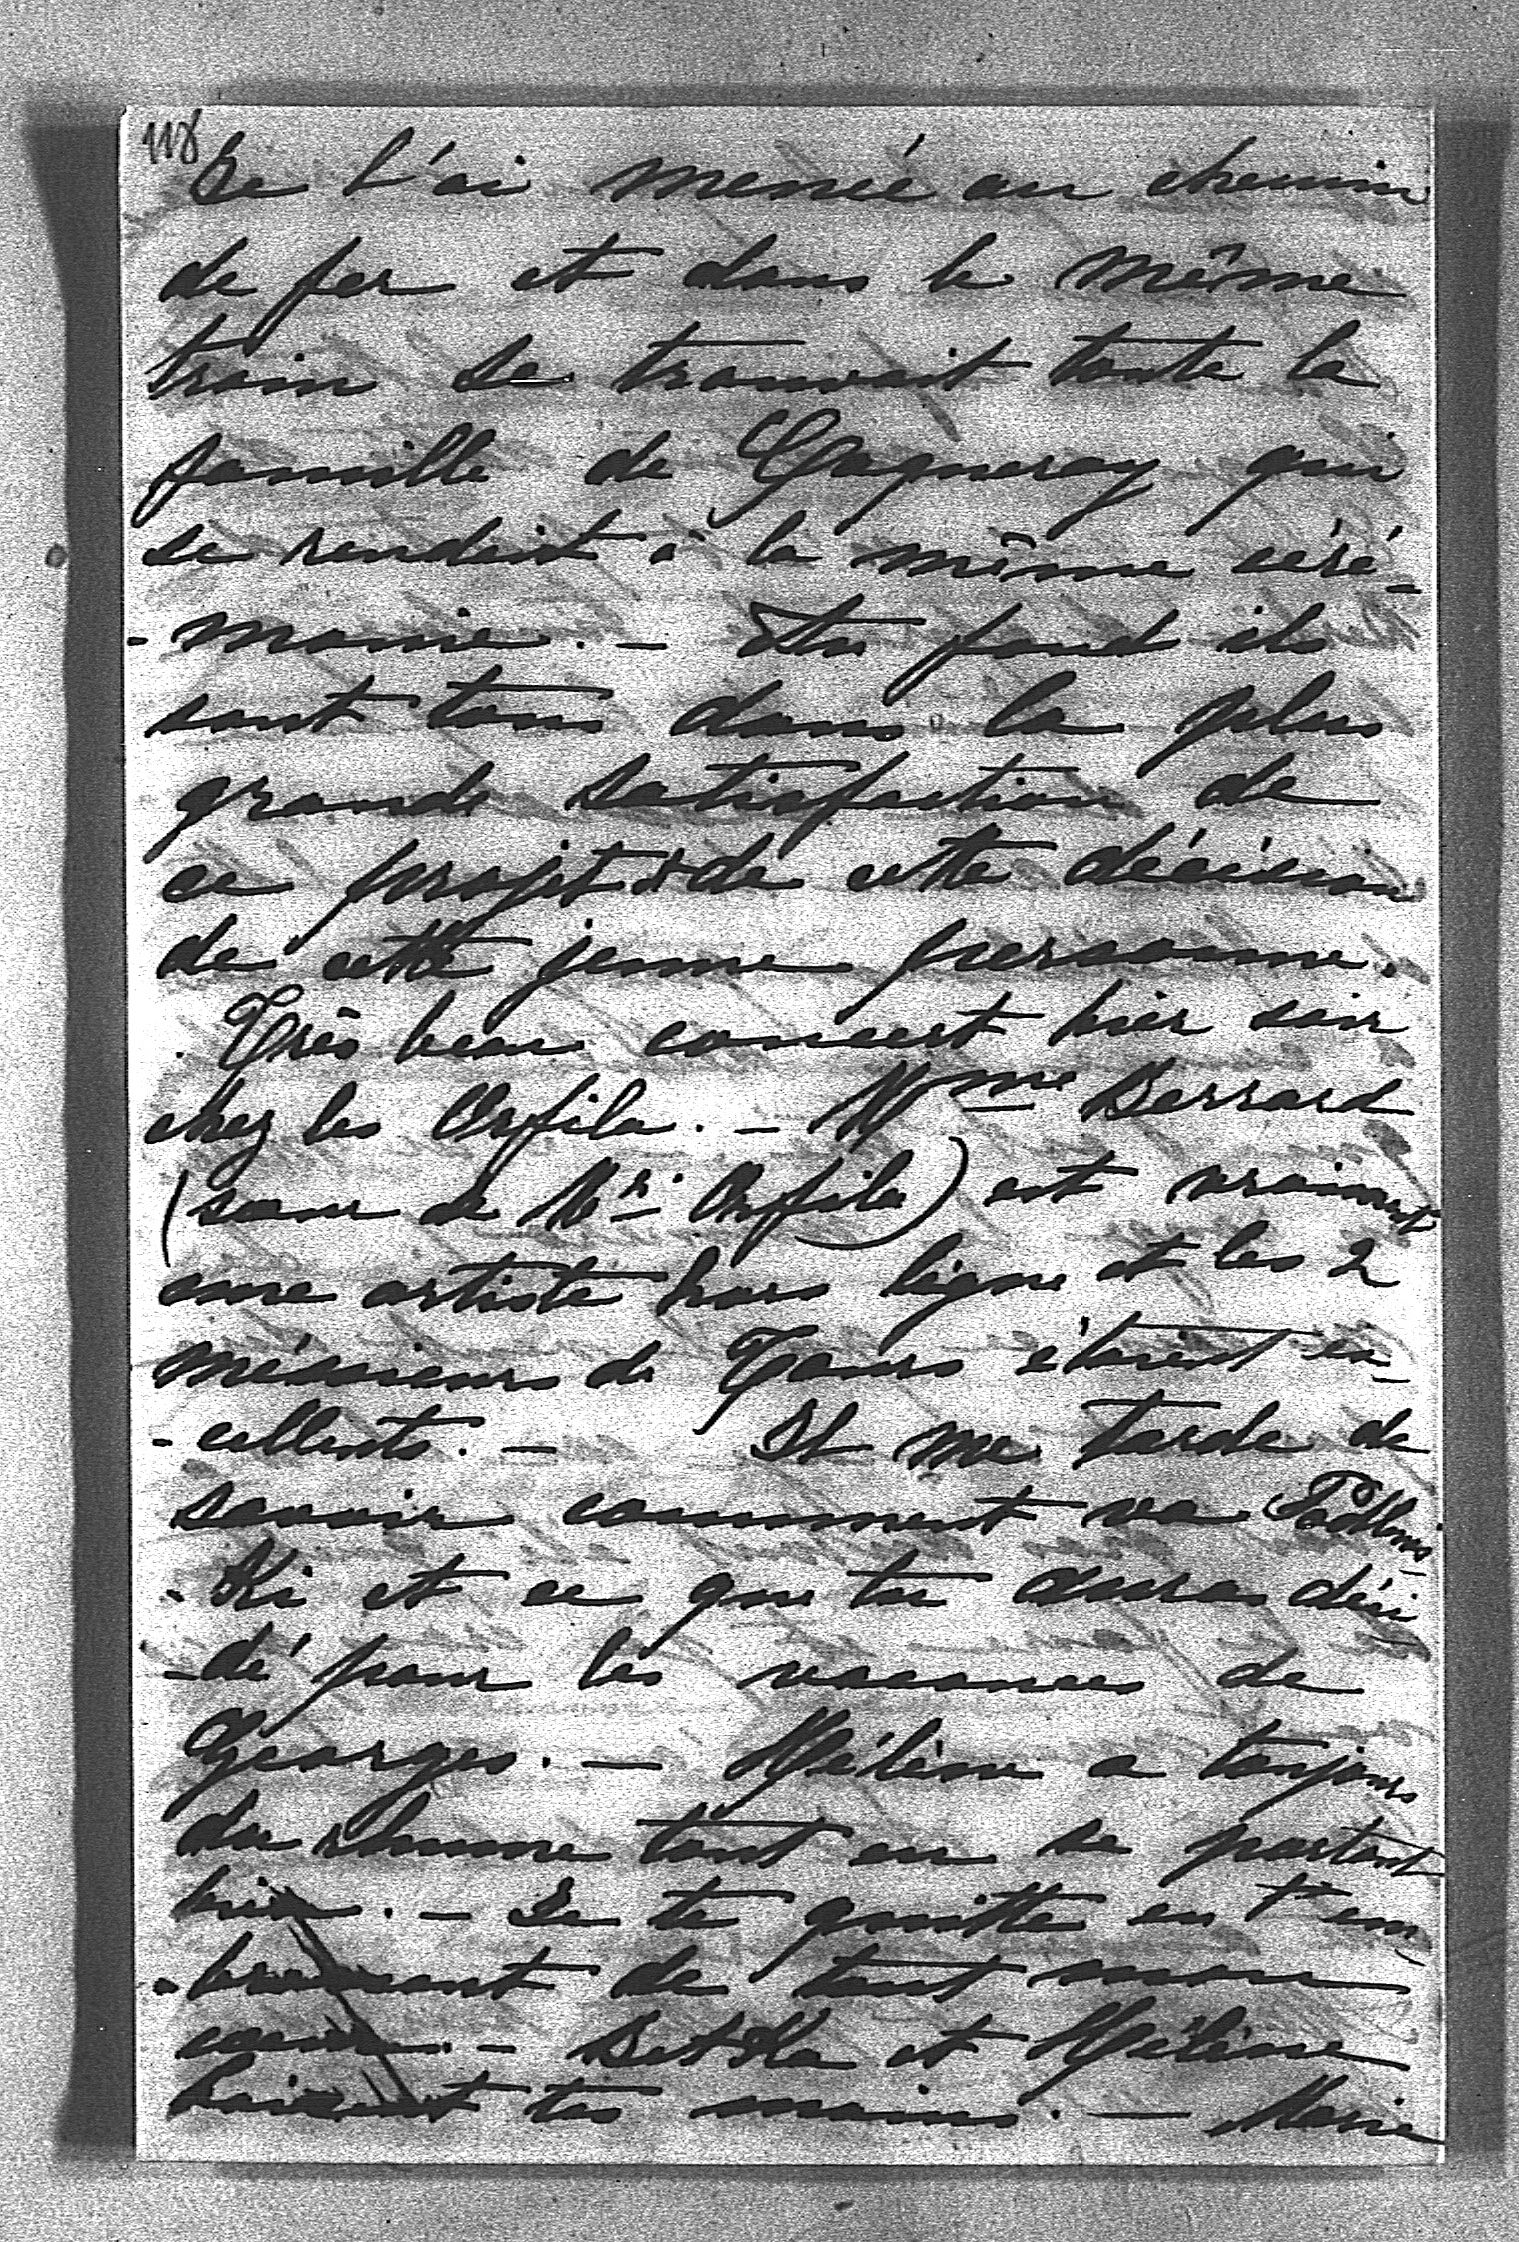 118
Je l'ai menée au chemin
de fer et dans le même
train se trouvait toute la
famille de Gagneray qui
se rendait à la même céré-
-monie. — Au fond ils
sont tous dans la plus
grande satisfaction de
ce projet & de cette décision
de cette jeune personne.
Très beau concert hier soir
chez les Orfila. — Mme Berrard
(sœur de Mr. Orfila) est vraiment
une artiste hors ligne et les 2
messieurs de Tours étaient ex-
-cellents. — Il me tarde de
savoir comment va
-ki et ce que tu auras déci-
-dé pour les vacances de
Georges. — Hélène a toujours
du rhume tout en se portant
bien. — Je te quitte en t'em-
-brassant de tout mon
cœur. — Betka et Hélène
baisent tes mains. — Marie